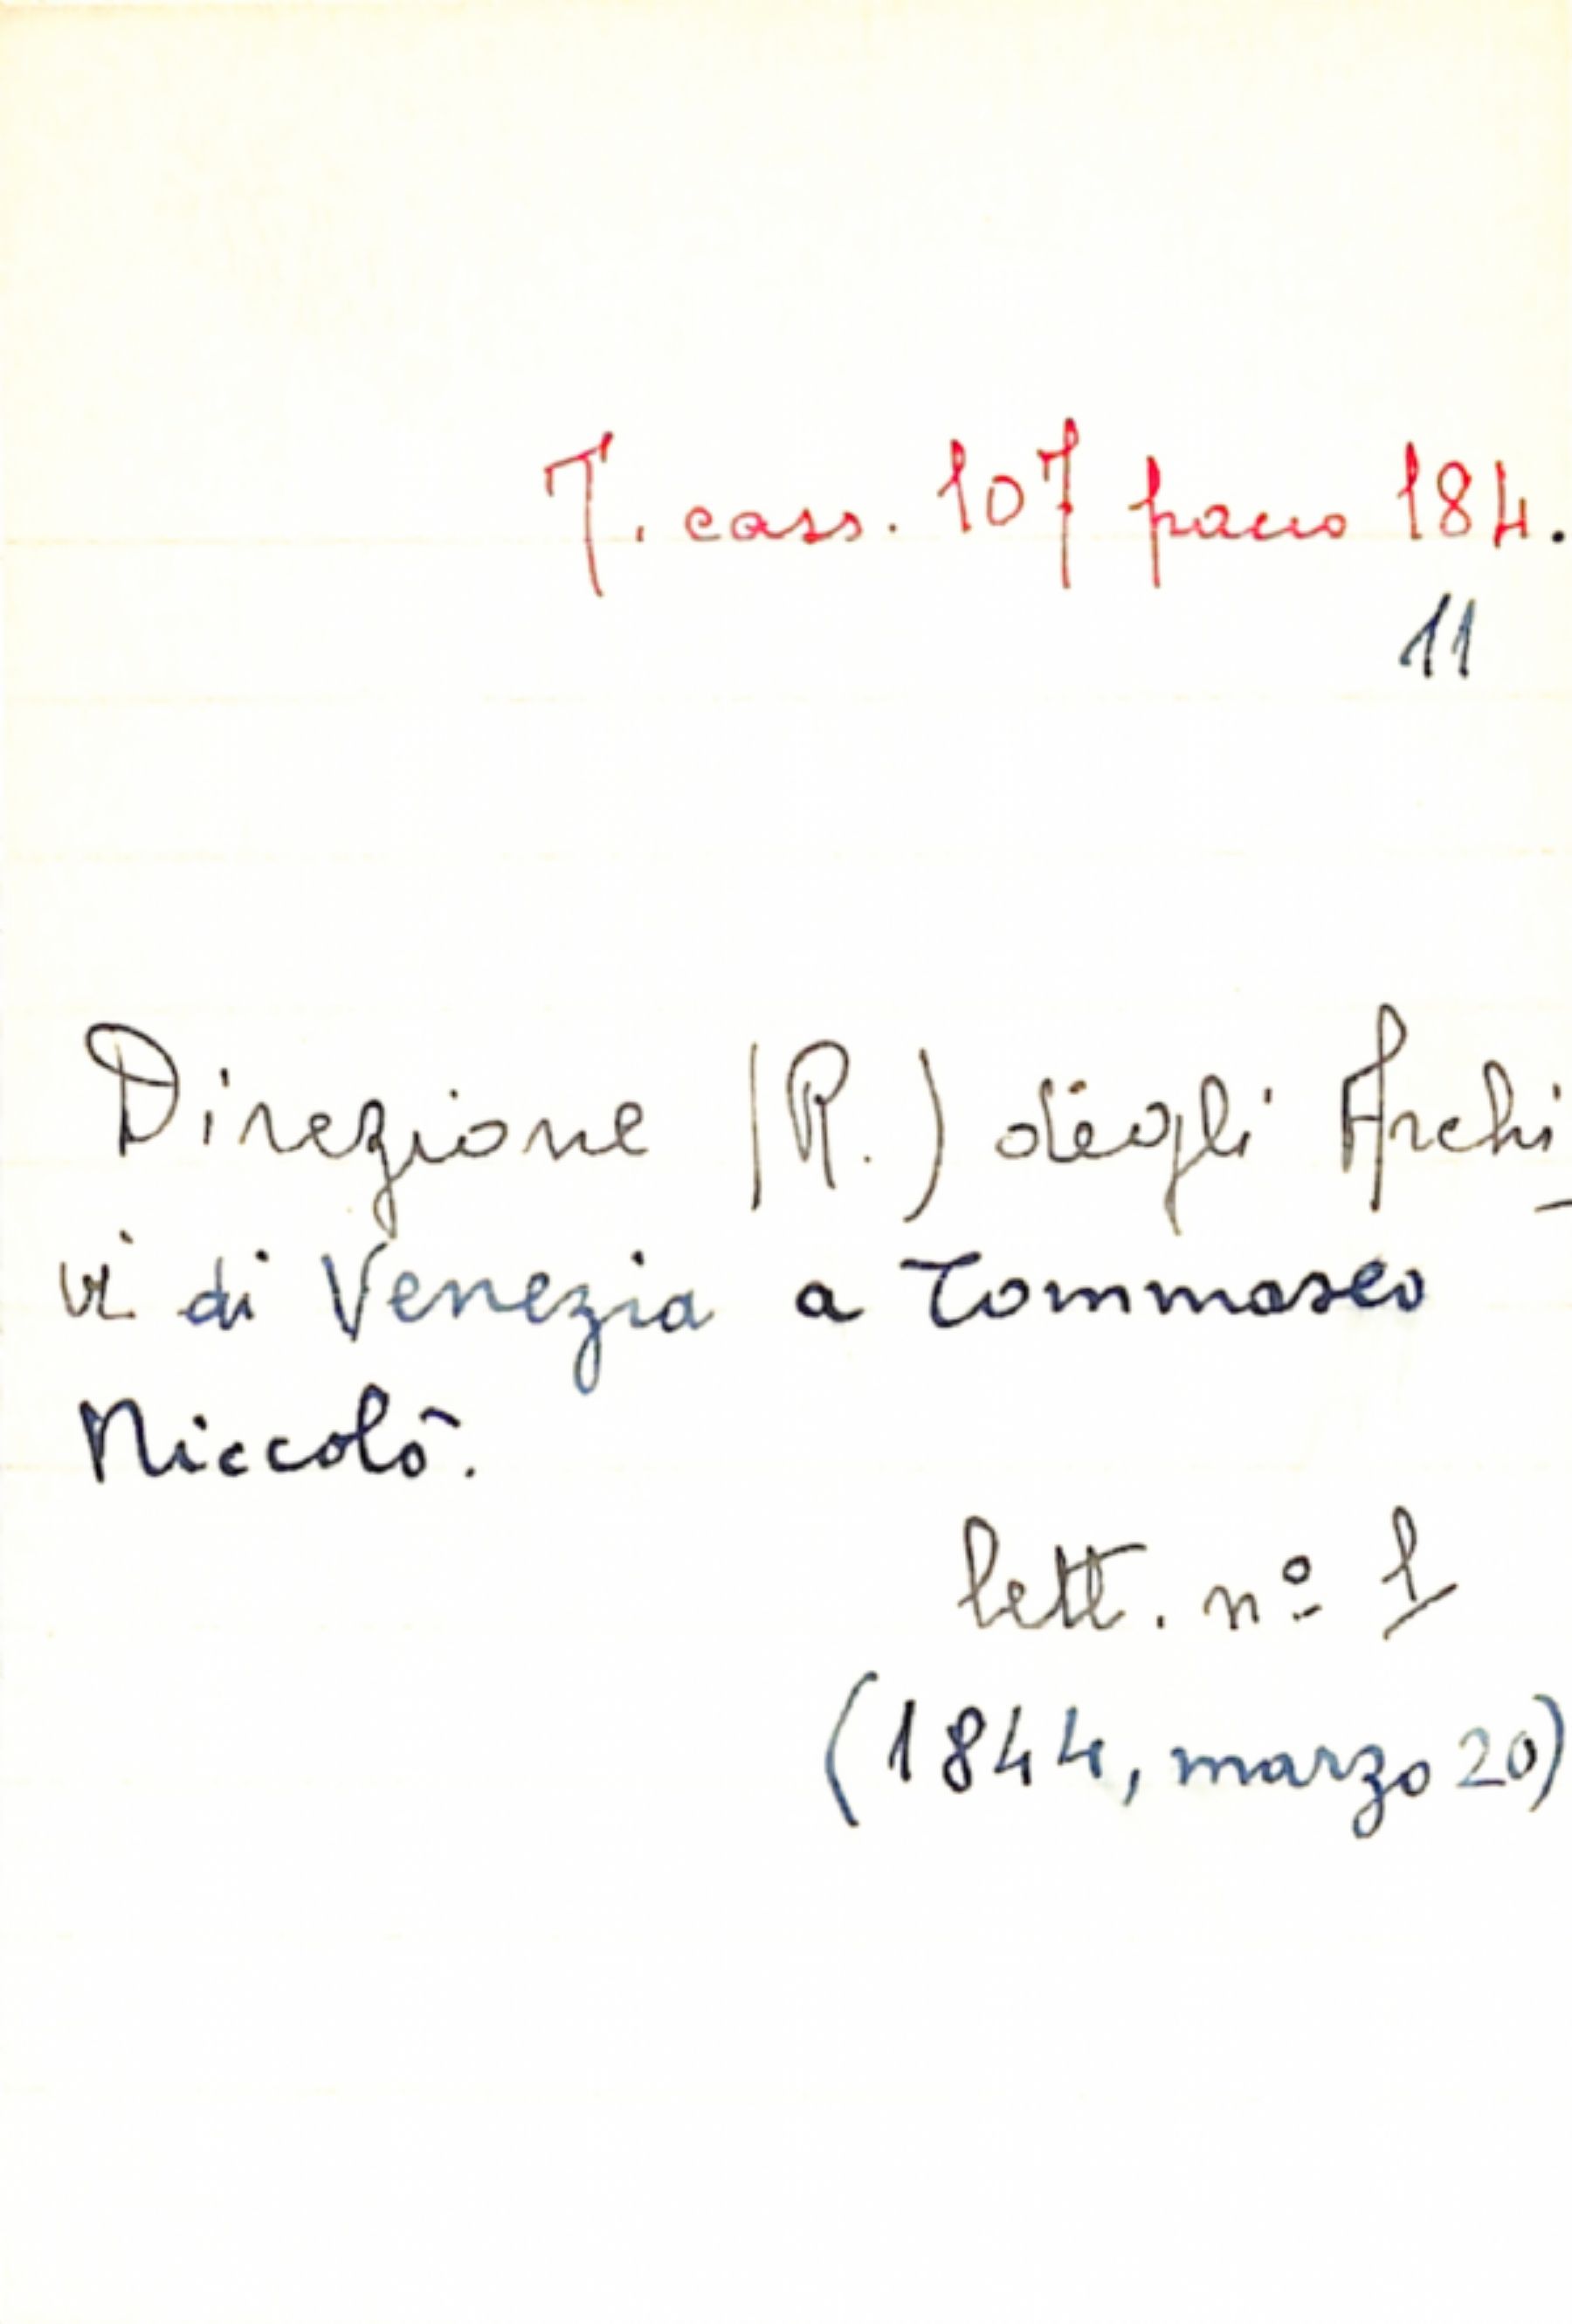 T. cass. 107 pacco 184.
11
Direzione (R.) degli Archi_
vi di Venezia a Tommaseo
Niccolò.
lett. nº 1
(1844, marzo 20)